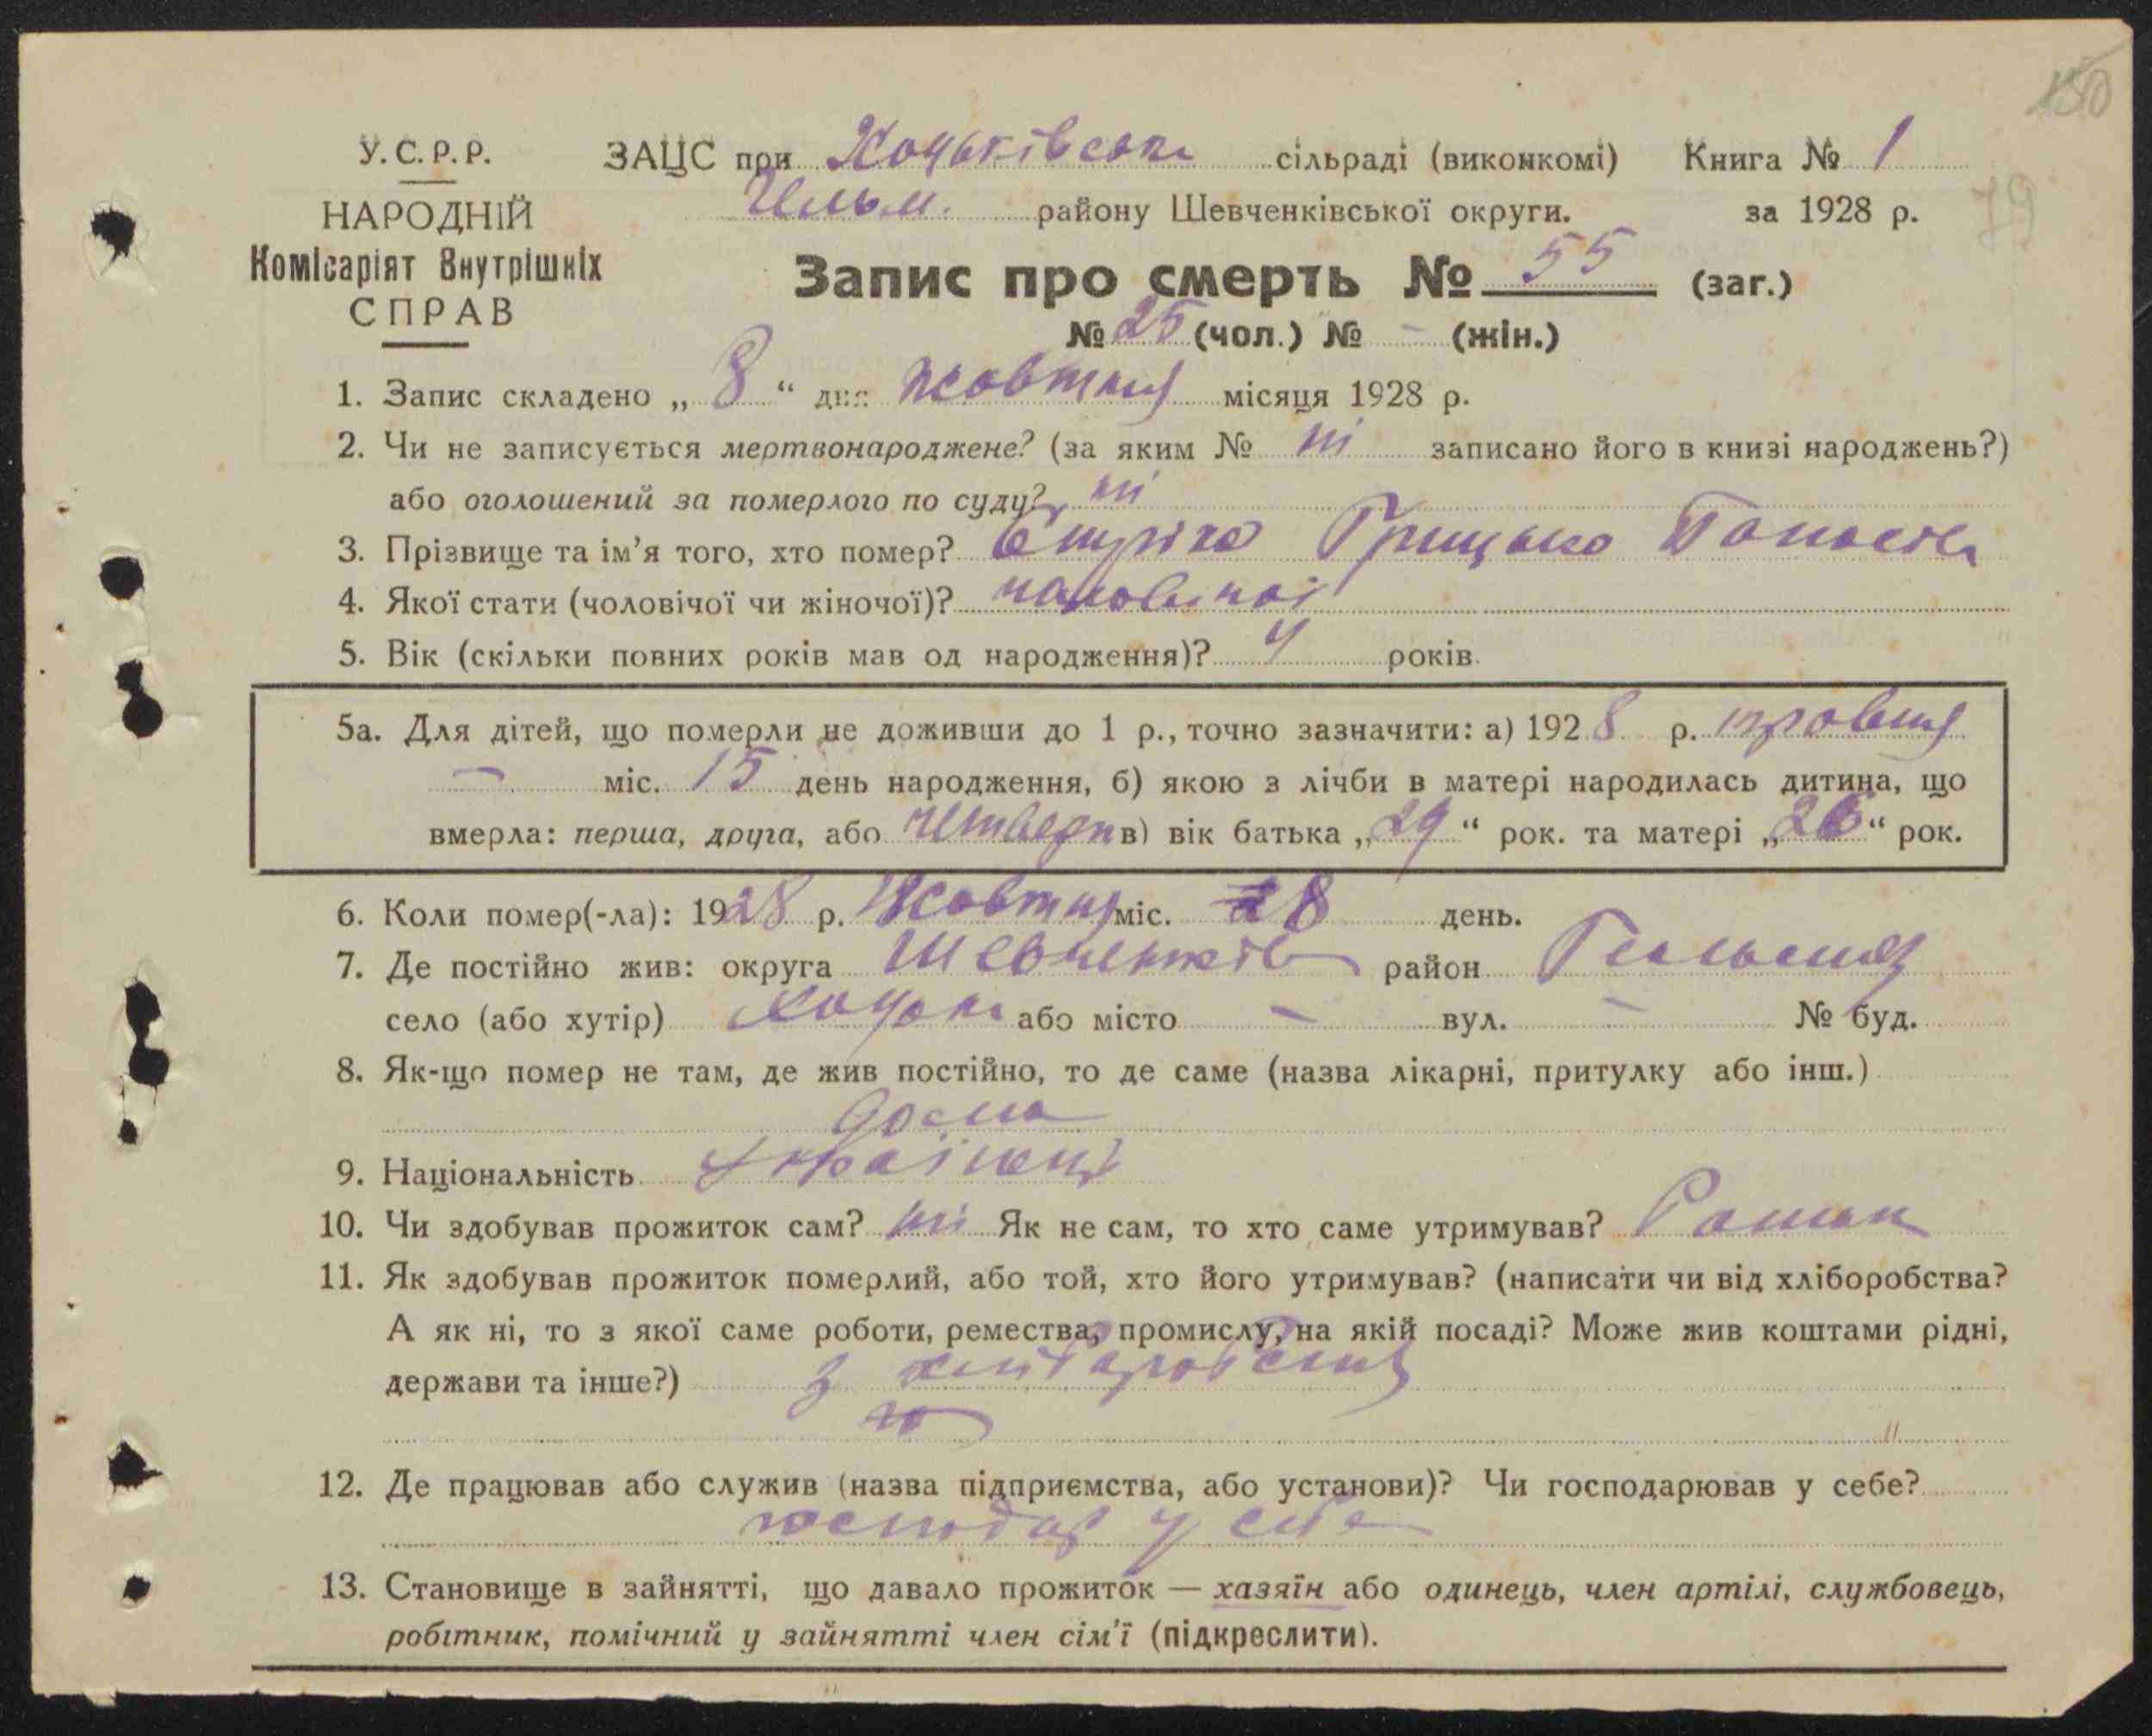 150
У.С.Р.Р. ЗАЦС при Хоцьківські сільраді (виконкомі) Книга № 1
НАРОДНІЙ Гельм. району Шевченківської округи. за 1928 р. 79
Комісаріят Внутрішніх
СПРАВ
Запис про смерть № 55 (заг.)
№ 25 (чол.) № – (жін.)
1. Запис складено „ 8 “ дня жовтня місяця 1928 р.
2. Чи не записується мертвонароджене? (за яким № ні записано його в книзі народжень?)
або оголошений за померлого по суду? ні
3. Прізвище та ім’я того, хто помер? Грицько Панасів
4. Якої стати (чоловічої чи жіночої)? чоловічої
5. Вік (скільки повних років мав од народження)? років.
5а. Для дітей, що померли не доживши до 1 р., точно зазначити: а) 1928 р. травня
– міс. 15 день народження, б) якою з лічби в матері народилась дитина, що
вмерла: перша, друга, або четверти в) вік батька „ 29 “ рок. та матері „ 26 “ рок.
6. Коли помер(-ла): 1928 р. Жовтня міс. 8 день.
7. Де постійно жив: округа Шевченків район
село (або хутір) Хоцьки або місто – вул. – № буд.
8. Як-що помер не там, де жив постійно, то де саме (назва лікарні, притулку або інш.)
дома
9. Національність Українці
10. Чи здобував прожиток сам? ні Як не сам, то хто саме утримував?
11. Як здобував прожиток померлий, або той, хто його утримував? (написати чи від хліборобства?
А як ні, то з якої саме роботи, ремества, промислу, на якій посаді? Може жив коштами рідні,
держави та інше?) з хліборобства
12. Де працював або служив (назва підприємства, або установи)? Чи господарював у себе?
господар у себе
13. Становище в зайнятті, що давало прожиток — хазяїн або одинець, член артілі, службовець,
робітник, помічний у зайнятті член сім’ї (підкреслити).